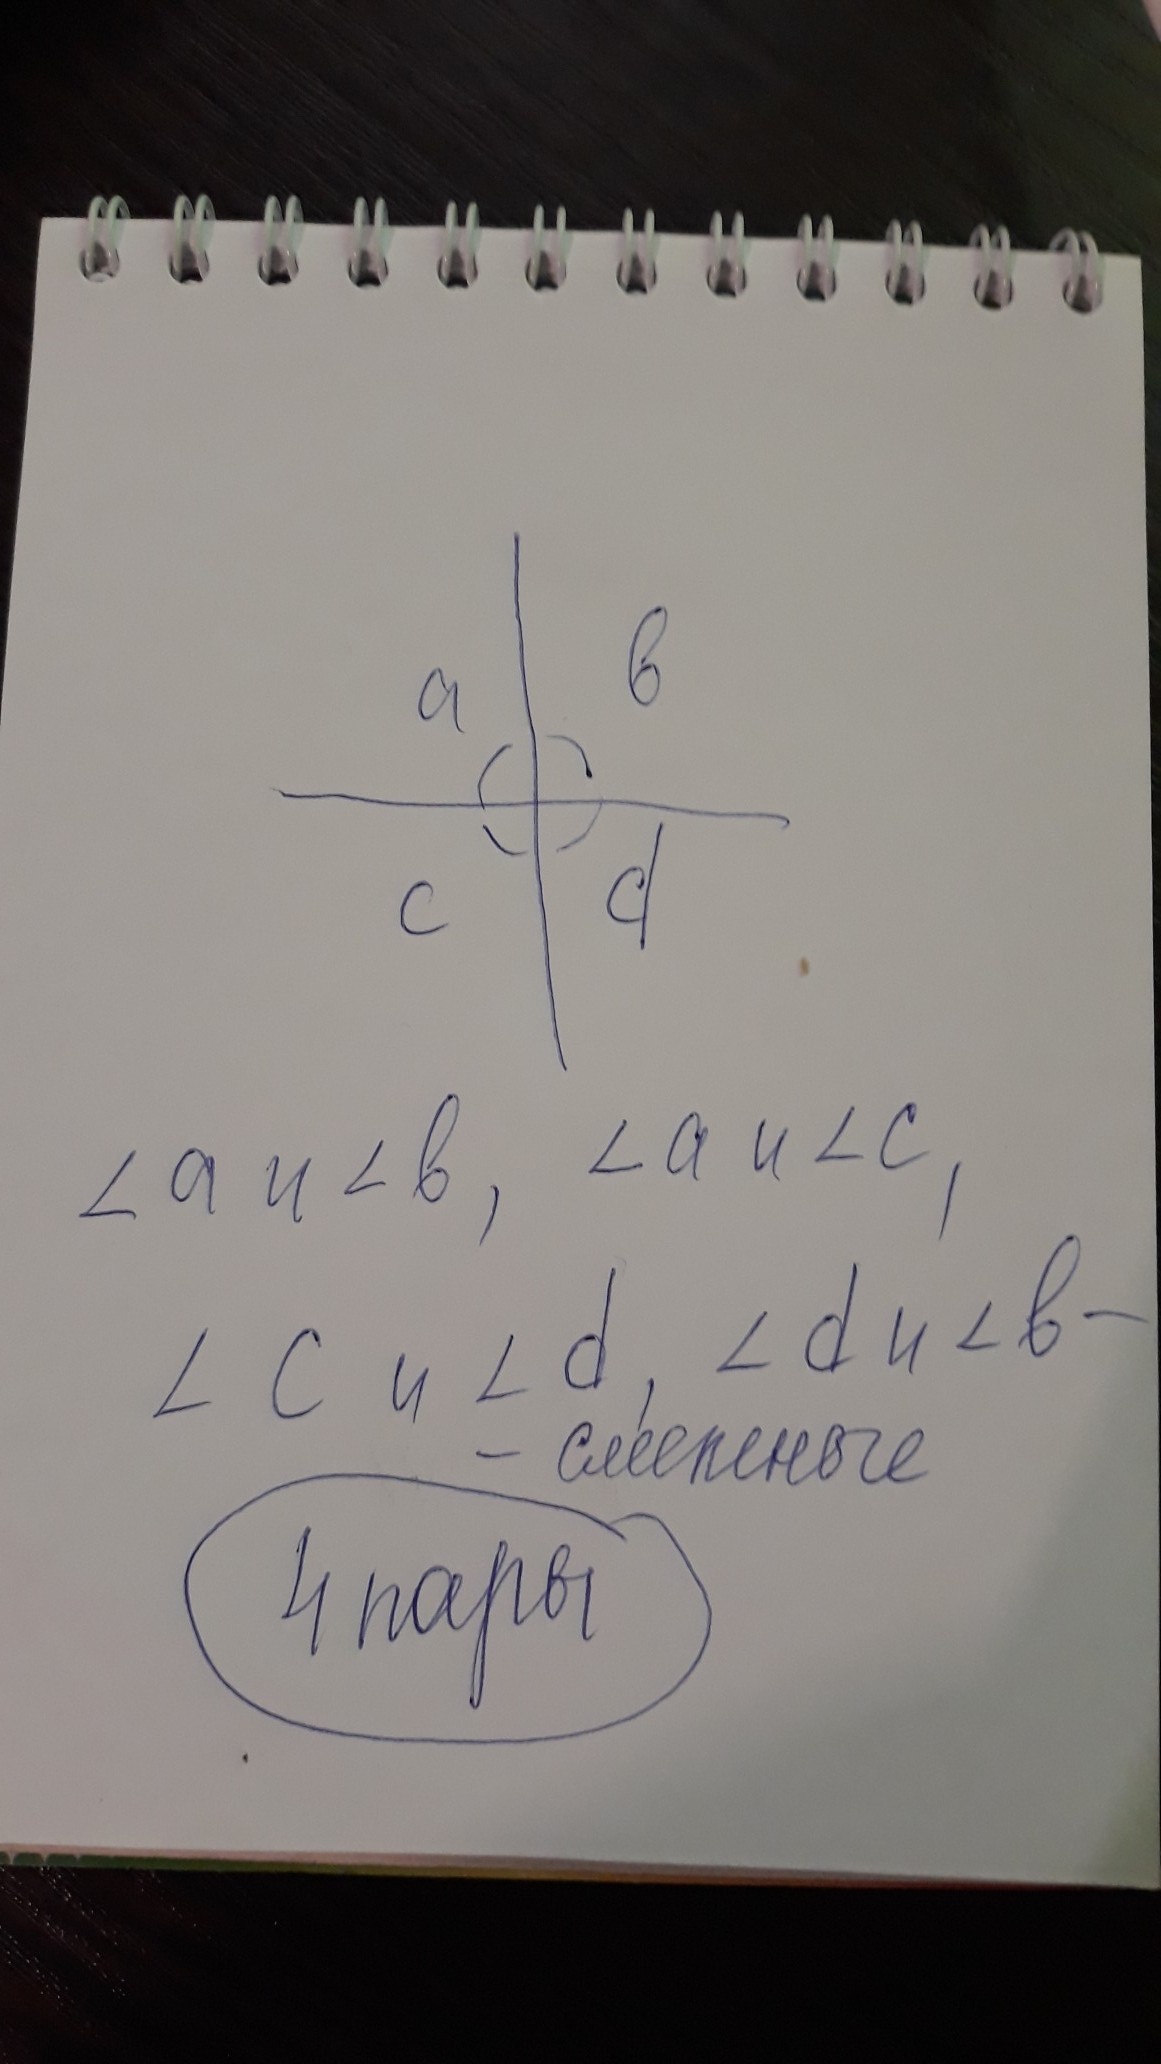 a в
c d
∠a и ∠в, ∠a и ∠c,
∠c и ∠d, ∠d и ∠в –
– смежные
4 пары